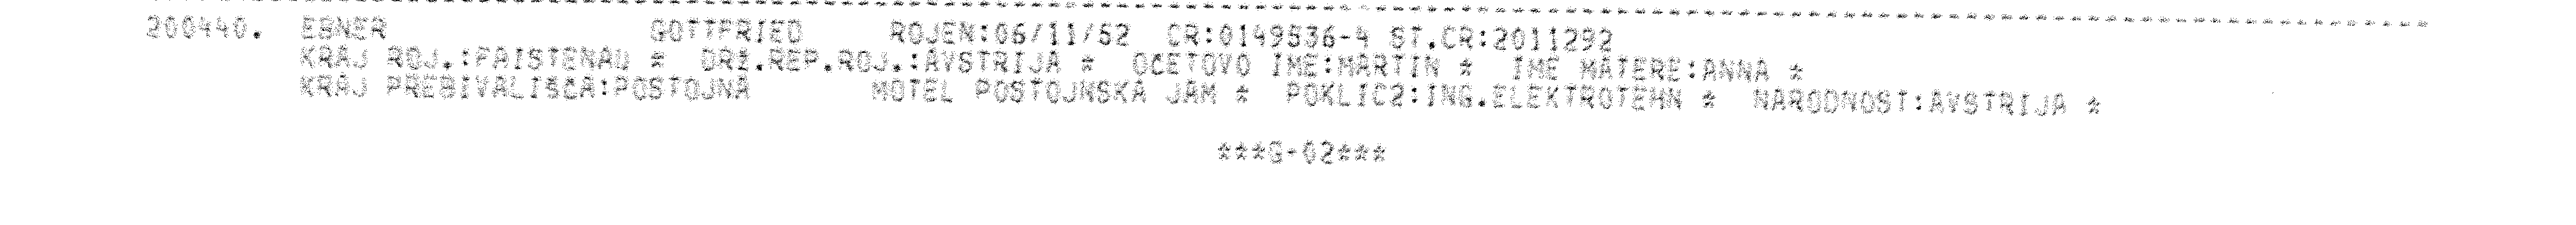 200440. EBNER GOTTFRIED ROJEN:06/11/52 CR:0149536-4 ST.CR:2011292
KRAJ ROJ.:FAISTENAU * DRŽ.REP.ROJ.:AVSTRIJA * OČETOVO IME:MARTIN * IME MATERE:ANNA *
KRAJ PREBIVALIŠČA:POSTOJNA MOTEL POSTOJNSKA JAM * POKLIC2:ING.ELEKTROTEHN * NARODNOST:AVSTRIJA *
***G-02***